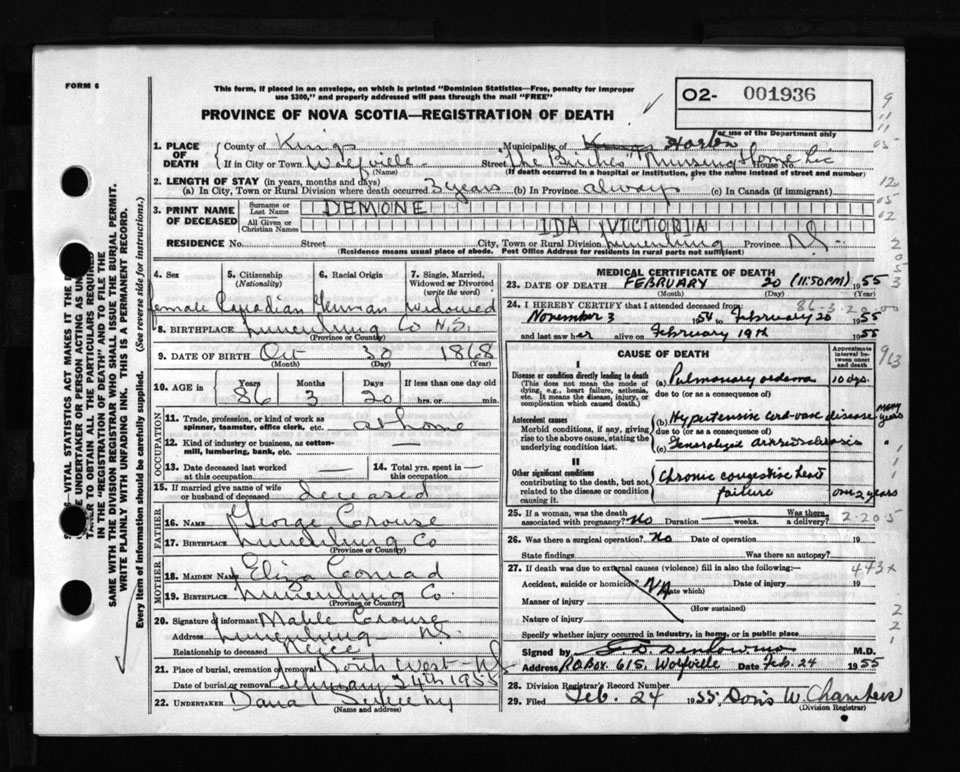 FORM 6
This form, if placed in an envelope, on which is printed "Dominion Statistics—Free, penalty for improper
use $300," and properly addressed will pass through the mail "FREE"
PROVINCE OF NOVA SCOTIA—REGISTRATION OF DEATH
O2- 001936
For use of the Department only
1. PLACE OF DEATH
County of Kings Municipality of Horton
If in City or Town Wolfville Street "The Birches" Nursing Home House No.
(Name) (If death occurred in a hospital or institution, give the name instead of street and number)
2. LENGTH OF STAY (in years, months and days)
(a) In City, Town or Rural Division where death occurred 3 years (b) In Province always (c) In Canada (if immigrant)
3. PRINT NAME OF DECEASED
Surname or Last Name DEMONE
All Given or Christian Names IDA VICTORIA
RESIDENCE No. Street City, Town or Rural Division Lunenburg Province N.S.
(Residence means usual place of abode. Post Office Address for residents in rural parts not sufficient)
4. Sex Female
5. Citizenship (Nationality) Canadian
6. Racial Origin German
7. Single, Married, Widowed or Divorced (write the word) widowed
8. BIRTHPLACE Lunenburg Co N.S.
(Province or County)
9. DATE OF BIRTH Oct 30 1868
(Month) (Day) (Year)
10. AGE in Years 86 Months 3 Days 20 If less than one day old hrs. or min.
OCCUPATION
11. Trade, profession, or kind of work as spinner, teamster, office clerk, etc. at home
12. Kind of industry or business, as cotton-mill, lumbering, bank, etc. —
13. Date deceased last worked at this occupation —
14. Total yrs. spent in this occupation —
15. If married give name of wife or husband of deceased deceased
FATHER
16. NAME George Crouse
17. BIRTHPLACE Lunenburg Co
(Province or Country)
MOTHER
18. MAIDEN NAME Eliza Conrad
19. BIRTHPLACE Lunenburg Co.
(Province or Country)
20. Signature of informant Mable Crouse
Address Lunenburg N.S.
Relationship to deceased Neice
21. Place of burial, cremation or removal South West N.S
Date of burial or removal February 24th 1955
22. UNDERTAKER Dana Sweeny
(Name and address)
MEDICAL CERTIFICATE OF DEATH
23. DATE OF DEATH FEBRUARY 20 (11:50PM) 1955
(Month) (Day) (Year)
24. I HEREBY CERTIFY that I attended deceased from:
November 3 1954 to February 20 1955
and last saw her alive on February 19th 1955
CAUSE OF DEATH
Approximate interval between onset and death
I
Disease or condition directly leading to death
(This does not mean the mode of dying, e.g., heart failure, asthenia, etc. It means the disease, injury, or complication which caused death.)
(a) Pulmonary oedema 10 dys.
due to (or as a consequence of)
Antecedent causes
Morbid conditions, if any, giving rise to the above cause, stating the underlying condition last.
(b) Hypertensive card-vasc disease many years
due to (or as a consequence of)
(c) Generalized arteriosclerosis "
II
Other significant conditions
contributing to the death, but not related to the disease or condition causing it.
Chronic congestive heart failure over 2 years
25. If a woman, was the death associated with pregnancy? No Duration weeks. Was there a delivery?
26. Was there a surgical operation? No Date of operation 19
State findings Was there an autopsy?
27. If death was due to external causes (violence) fill in also the following:—
Accident, suicide or homicide? (State which) Date of injury 19
Manner of injury
(How sustained)
Nature of injury
Specify whether injury occurred in industry, in home, or in public place
Signed by M.D.
Address P.O Box 615, Wolfville Date Feb. 24 1955
28. Division Registrar's Record Number
29. Filed Feb. 24 1955. Doris W. Chambers
(Division Registrar)
86-3-20-00
913
2-20-5
473x
SAME WITH THE DIVISION REGISTRAR WHO SHALL ISSUE THE BURIAL PERMIT.
WRITE PLAINLY WITH UNFADING INK. THIS IS A PERMANENT RECORD.
Every item of information should be carefully supplied. (See reverse side for instructions.)